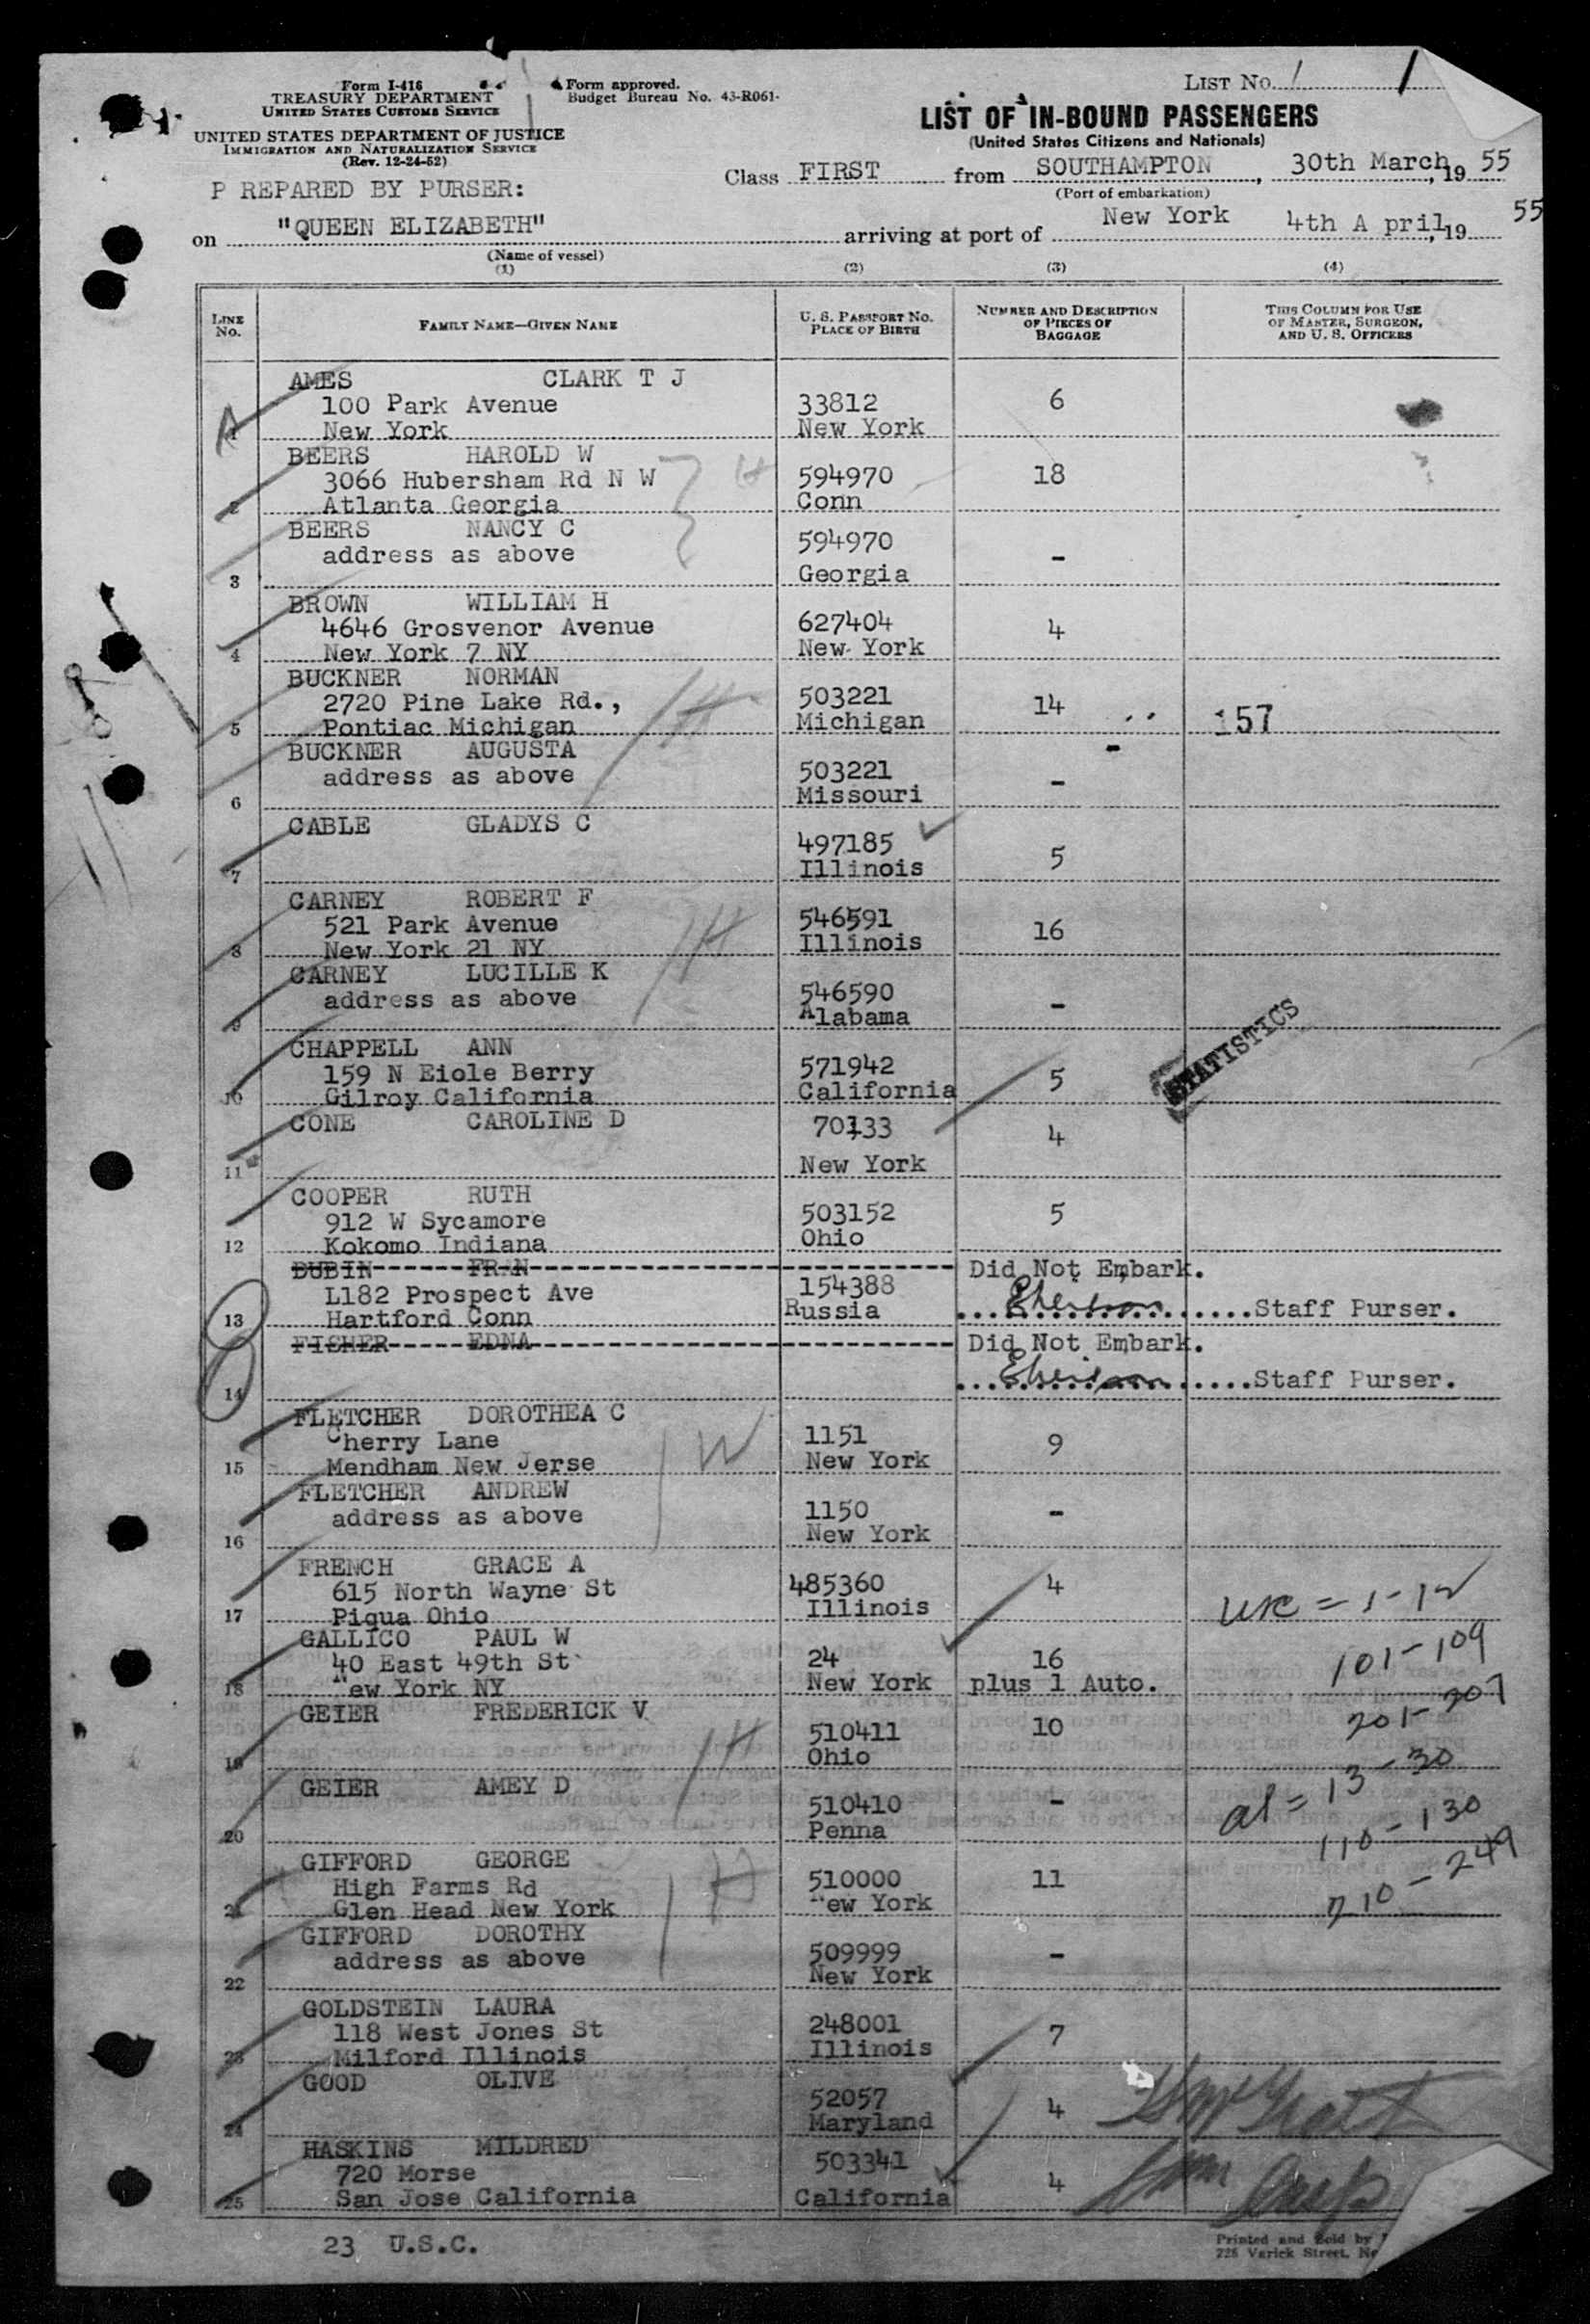 Form I-416
TREASURY DEPARTMENT
UNITED STATES CUSTOMS SERVICE
UNITED STATES DEPARTMENT OF JUSTICE
IMMIGRATION AND NATURALIZATION SERVICE
(Rev. 12-24-52)
Form approved.
Budget Bureau No. 43-R061-
LIST NO. 1
LIST OF IN-BOUND PASSENGERS
(United States Citizens and Nationals)
P REPARED BY PURSER:
Class FIRST from SOUTHAMPTON, 30th March, 19 55
(Port of embarkation)
on "QUEEN ELIZABETH" arriving at port of New York 4th A pril, 19 55
(Name of vessel)
(1) (2) (3) (4)
LINE NO.
FAMILY NAME—GIVEN NAME
U. S. PASSPORT NO.
PLACE OF BIRTH
NUMBER AND DESCRIPTION
OF PIECES OF
BAGGAGE
THIS COLUMN FOR USE
OF MASTER, SURGEON,
AND U. S. OFFICERS
AMES CLARK T J
100 Park Avenue 33812 6
1 New York New York
BEERS HAROLD W
3066 Hubersham Rd N W 594970 18
2 Atlanta Georgia Conn
BEERS NANCY C
address as above 594970 -
3 Georgia
BROWN WILLIAM H
4646 Grosvenor Avenue 627404 4
4 New York 7 NY New York
BUCKNER NORMAN
2720 Pine Lake Rd., 503221 14
5 Pontiac Michigan Michigan 157
BUCKNER AUGUSTA
address as above 503221 -
6 Missouri
CABLE GLADYS C
497185 5
7 Illinois
CARNEY ROBERT F
521 Park Avenue 546591 16
8 New York 21 NY Illinois
CARNEY LUCILLE K
address as above 546590 -
9 Alabama
STATISTICS
CHAPPELL ANN
159 N Eiole Berry 571942 5
10 Gilroy California California
CONE CAROLINE D 70133 4
11 New York
COOPER RUTH
912 W Sycamore 503152 5
12 Kokomo Indiana Ohio
DUBIN FRAN Did Not Embark.
L182 Prospect Ave 154388
13 Hartford Conn Russia Staff Purser.
FISHER EDNA Did Not Embark.
14 Staff Purser.
FLETCHER DOROTHEA C
Cherry Lane 1151 9
15 Mendham New Jerse New York
FLETCHER ANDREW
address as above 1150 -
16 New York
FRENCH GRACE A
615 North Wayne St 485360 4
17 Piqua Ohio Illinois usc = 1-12
GALLICO PAUL W
40 East 49th St 24 16 101-109
18 New York NY New York plus 1 Auto.
GEIER FREDERICK V 510411 10 201-207
19 Ohio
GEIER AMEY D al = 13-30
510410 -
20 Penna 110-130
GIFFORD GEORGE
High Farms Rd 510000 11 210-249
21 Glen Head New York New York
GIFFORD DOROTHY
address as above 509999 -
22 New York
GOLDSTEIN LAURA
118 West Jones St 248001 7
23 Milford Illinois Illinois
GOOD OLIVE
52057 4
24 Maryland
HASKINS MILDRED
720 Morse 503341 4
25 San Jose California California
23 U.S.C.
Printed and Sold by
225 Varick Street,